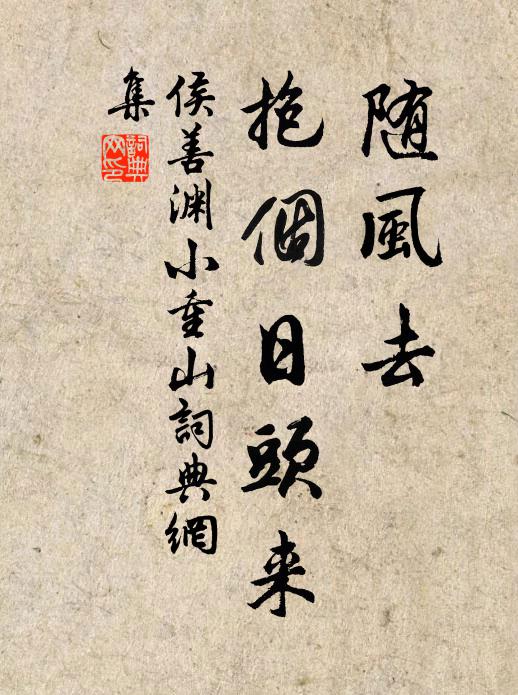 随風去
抱個日頭来
侯善渊小重山詞典網
集
詞典
网印